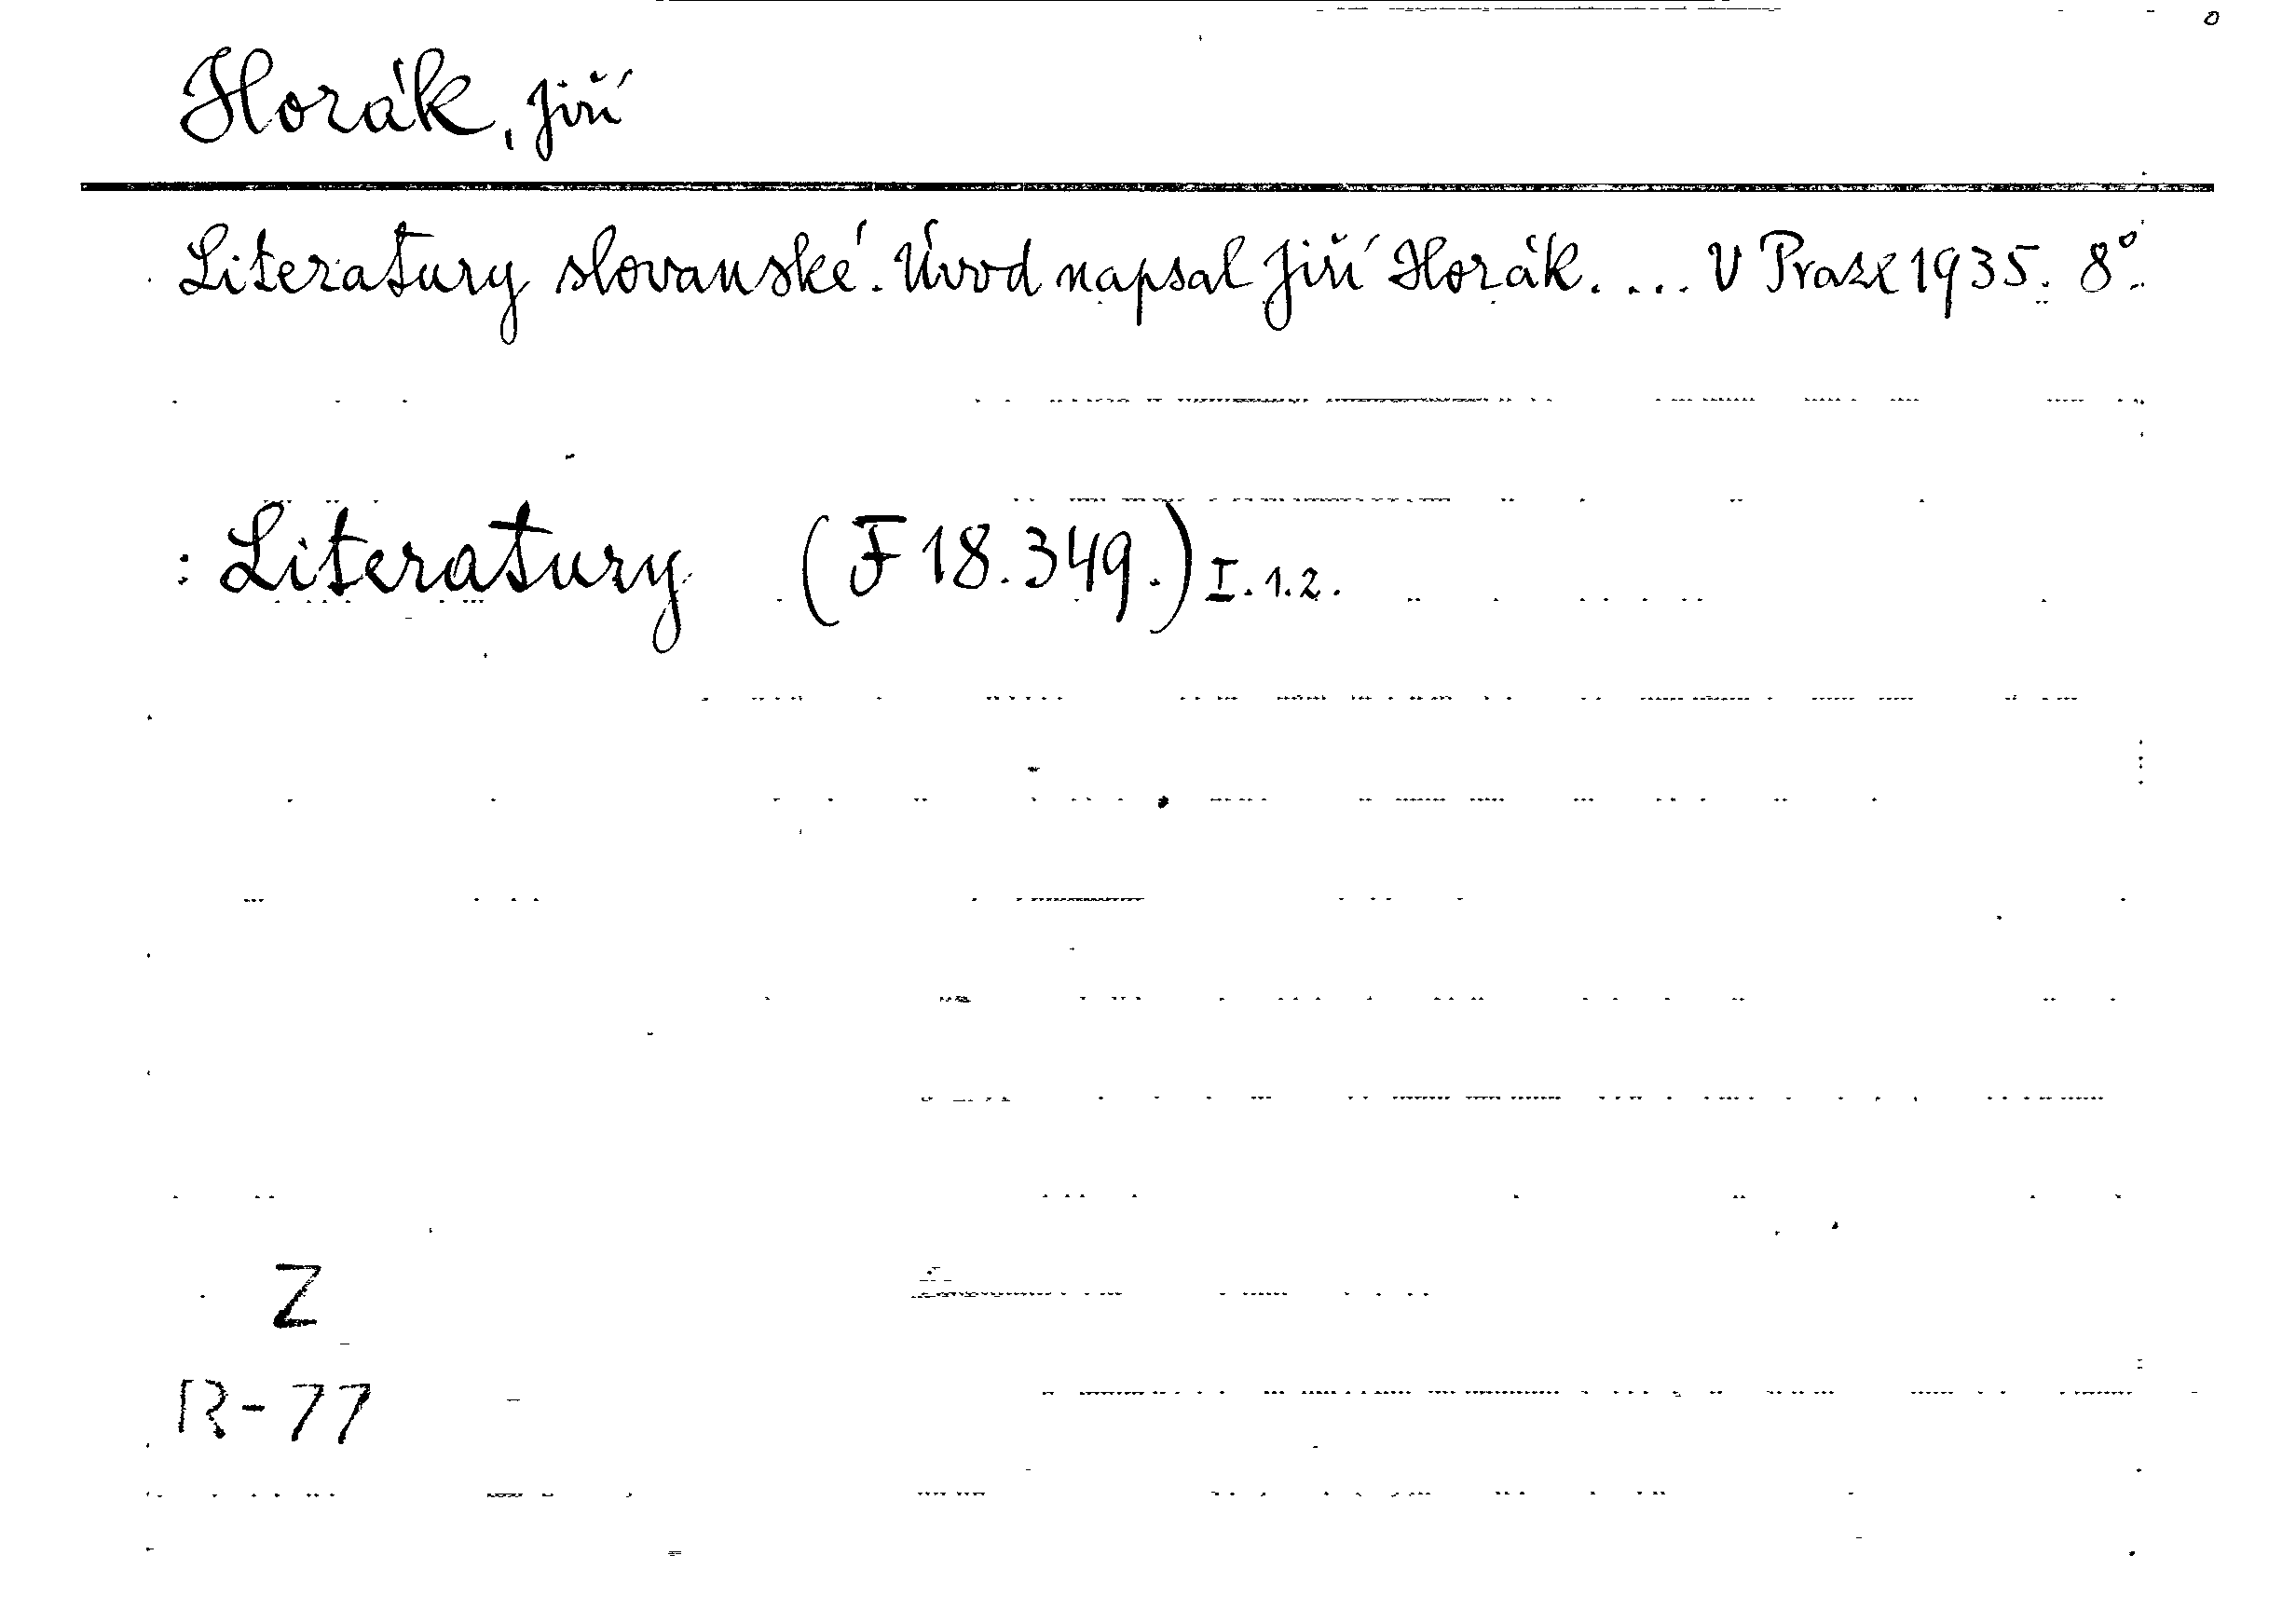 Horák, Jiří
Literatury slovanské. Úvod napsal Jiří Horák. ... V Praze 1935. 8°.
: Literatury (F 18.349.) I.1.2.
Z
R-77